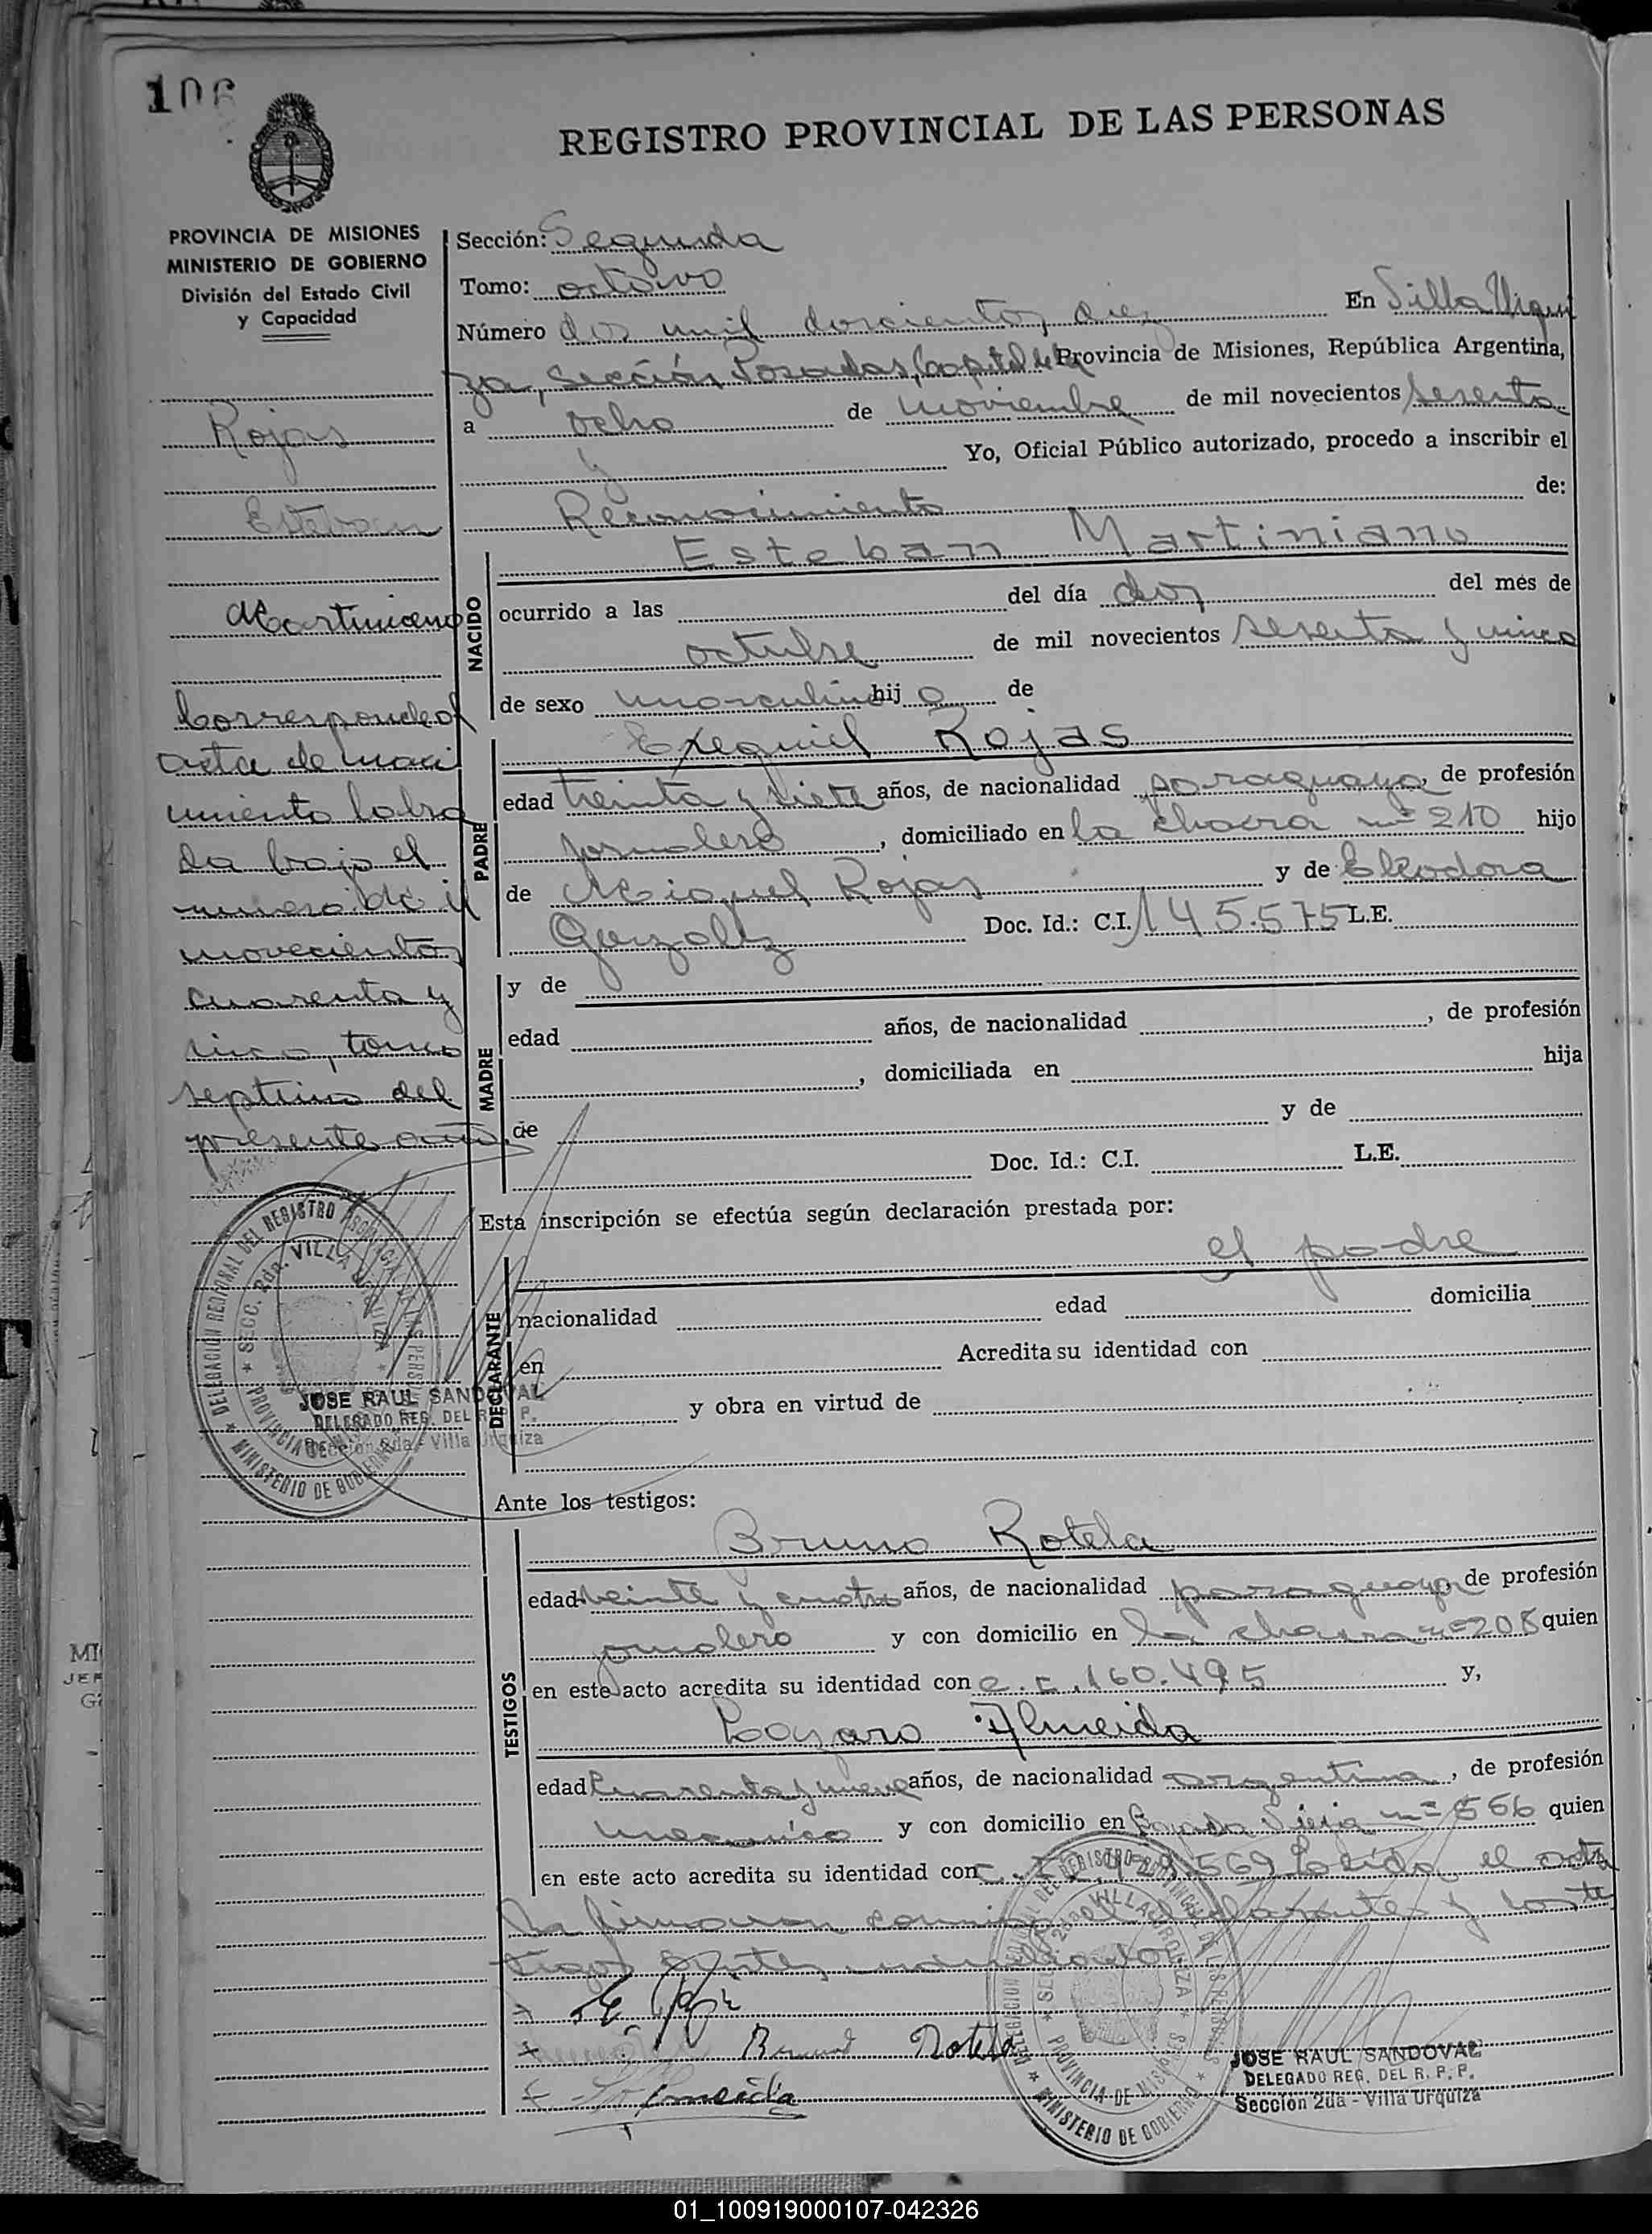 106
REGISTRO PROVINCIAL DE LAS PERSONAS
PROVINCIA DE MISIONES
MINISTERIO DE GOBIERNO
División del Estado Civil
y Capacidad
Rojas
Esteban
Martiniano
Corresponde al
acta de naci
miento labra
da bajo el
numero
novecientos
cuarenta y
cinco, tomo
septimo del
presente año
DELEGACION REGIONAL DEL REGISTRO PROVINCIAL DE LAS PERSONAS
SECC. 2da. VILLA URQUIZA
PROVINCIA DE MISIONES
MINISTERIO DE GOBIERNO
JOSE RAUL SANDOVAL
DELEGADO REG. DEL R. P. P.
Sección 2da - Villa Urquiza
Sección: Segunda
Tomo: octavo
Número dos mil doscientos diez En Villa Urqui
za, Sección Posadas, Capital de la Provincia de Misiones, República Argentina,
a ocho de noviembre de mil novecientos sesenta
y Yo, Oficial Público autorizado, procedo a inscribir el
Reconocimiento de:
NACIDO
Esteban Martiniano
ocurrido a las del día dos del més de
octubre de mil novecientos sesenta y cinco
de sexo masculino hij o de
PADRE
Exequiel Rojas
edad treinta y siete años, de nacionalidad paraguaya, de profesión
jornalero, domiciliado en la chacra nº 210 hijo
de Miguel Rojas y de Eleodora
Gonzalez Doc. Id.: C.I. 145.575 L.E.
MADRE
y de
edad años, de nacionalidad , de profesión
, domiciliada en hija
de y de
Doc. Id.: C.I. L.E.
Esta inscripción se efectúa según declaración prestada por:
el padre
DECLARANTE
nacionalidad edad domicilia
en Acredita su identidad con
y obra en virtud de
Ante los testigos:
TESTIGOS
Bruno Rotela
edad veinte y cuatro años, de nacionalidad paraguaya, de profesión
jornalero y con domicilio en la chacra nº 208 quien
en este acto acredita su identidad con c. i. 160.495 y,
Lazaro Almeida
edad cuarenta y nueve años, de nacionalidad argentina, de profesión
mecanico y con domicilio en nº 566 quien
en este acto acredita su identidad con 569 Leída el acta
la firmaron conmigo el declarante y los tes
tigos antes
Bruno Rotela
Almeida
DELEGACION REGIONAL DEL REGISTRO PROVINCIAL DE LAS PERSONAS
SECC. 2da. VILLA URQUIZA
PROVINCIA DE MISIONES
MINISTERIO DE GOBIERNO
JOSE RAUL SANDOVAL
DELEGADO REG. DEL R. P. P.
Sección 2da - Villa Urquiza
01_100919000107-042326